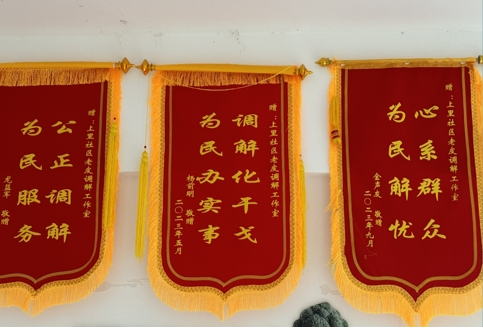 赠：上里社区老皮调解工作室
公正调解
为民服务
敬赠
赠：上里社区老皮调解工作室
调解化干戈
为民办实事
杨前明 敬赠
二〇二三年五月
赠：上里社区老皮调解工作室
心系群众
为民解忧
金声友 敬赠
二〇二三年九月